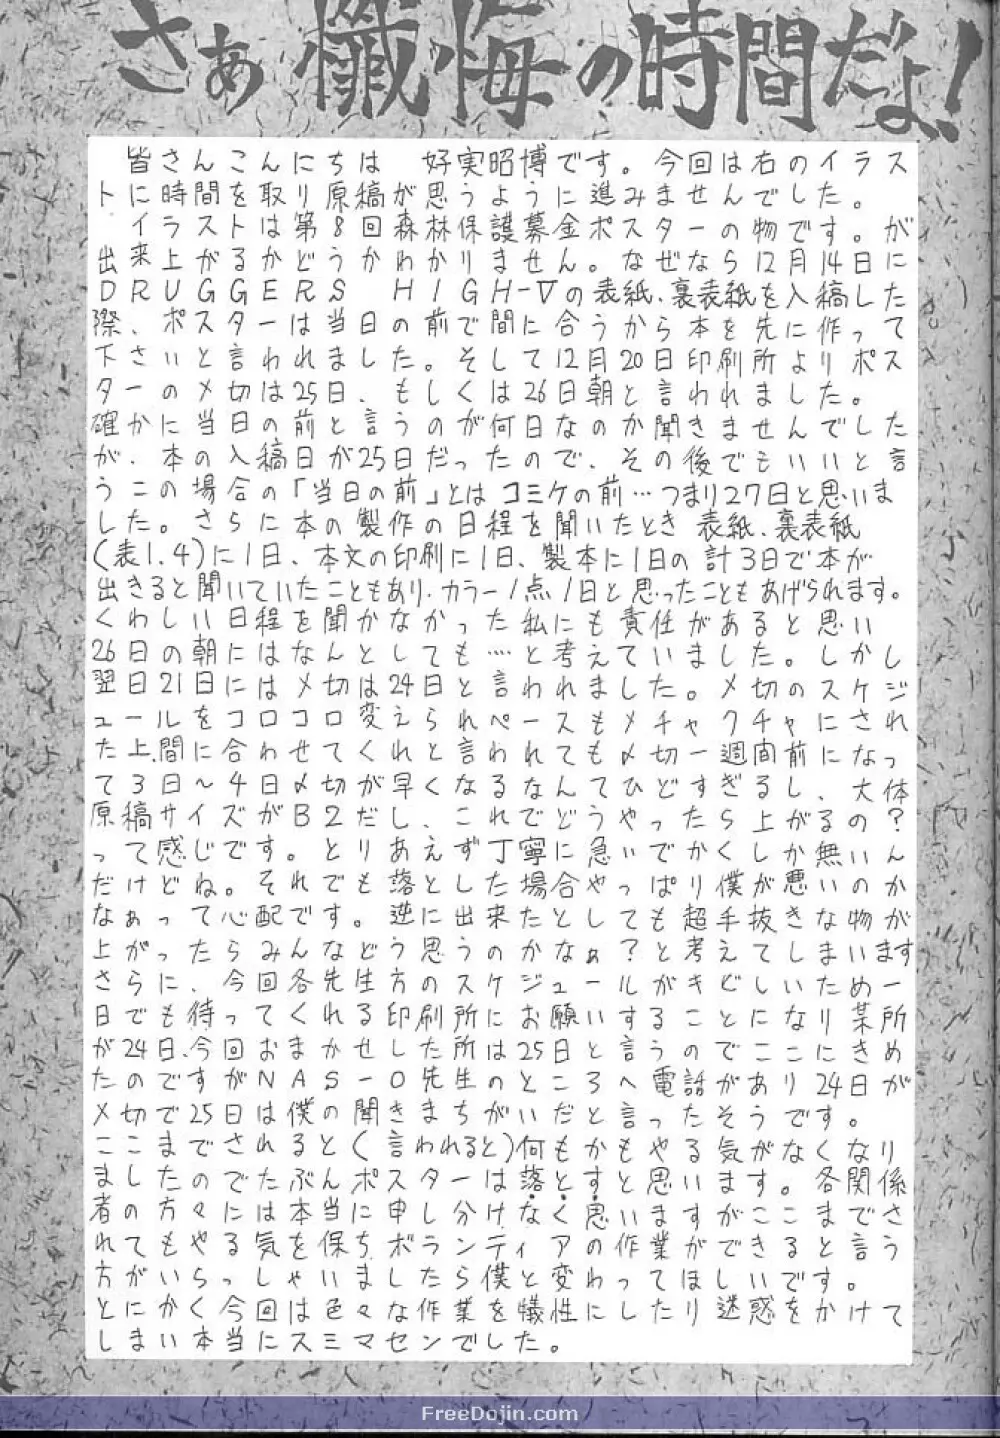 さぁ懺悔の時間だよ!
皆さんこんにちは　好実昭博です。今回は右のイラス
トに時間を取り原稿が思うように進みませんでした。
イラストは第8回森林保護募金ポスターの物です。が
出来上がるかどうかわかりません。なぜなら12月14日に
DRUGGERS HIGH-Vの表紙、裏表紙を入稿した
際、ポスターは当日の前で間に合うから本を先に作って
下さいと言われました。そして12月20日印刷所よりポス
ターの〆切は25日、もしくは26日朝と言われました。
確かに当日の前と言うのが何日なのか聞きませんでした
が、本の入稿日が25日だったので、その後でもいいと言
うこの場合の「当日の前」とはコミケの前…つまり27日と思いま
した。さらに本の製作の日程を聞いたとき表紙、裏表紙
(表1.4)に1日、本文の印刷に1日、製本に1日の計3日で本が
出きると聞いていたこともあり、カラー1点1日と思ったこともあげられます。
くわしい日程を聞かなかった私にも責任があると思い
26日の朝にはなんとしても…と考えていました。しかし
翌日21日には〆切は24日と言われました。〆切のスケジ
ュールをコロコロ変えられペースもメチャクチャにされ
た上、間に合わせてくれと言われても〆切一週間前になっ
て3日～4日〆切が早くなるなんてひどすぎるし、大体
原稿サイズがB2だし、これでどうやったら上がるの?
って感じです。とりあえず丁寧に急いでかくしか無いん
だけどね。それでも落とした場合やっぱり僕が悪いのか
なぁって心配です。逆に出来たとしても超手抜きな物が
上がったらみんなどう思うのかなぁ?と考えてしまいます
さらに、今回各先生方のスケジュールがきどしいため一
日でも待ってくれる印刷所にお願いすることになり某所
が24日、今回おまかせした所は25日と言うのでここにきめ
たのですがNAS-O先生のところへ電話があり24日が
〆切で25日は僕の聞きまちがいだと言ったそうです。
ここまでされると(言われると)何もかもやる気がなくなり
ましたのでたぶんポスターは落とすと思います。各関係
者の方々には本当に申し分けなく思いますがここまでさ
れてもやる気を保ちボランティアの作業ができると言う
方がいらっしゃいましたら僕と変わってほしいです。
とにかく今回は色々な作業を犠性にしたり迷惑をかけて
しまい本当にスミマセンでした。
FreeDojin.com